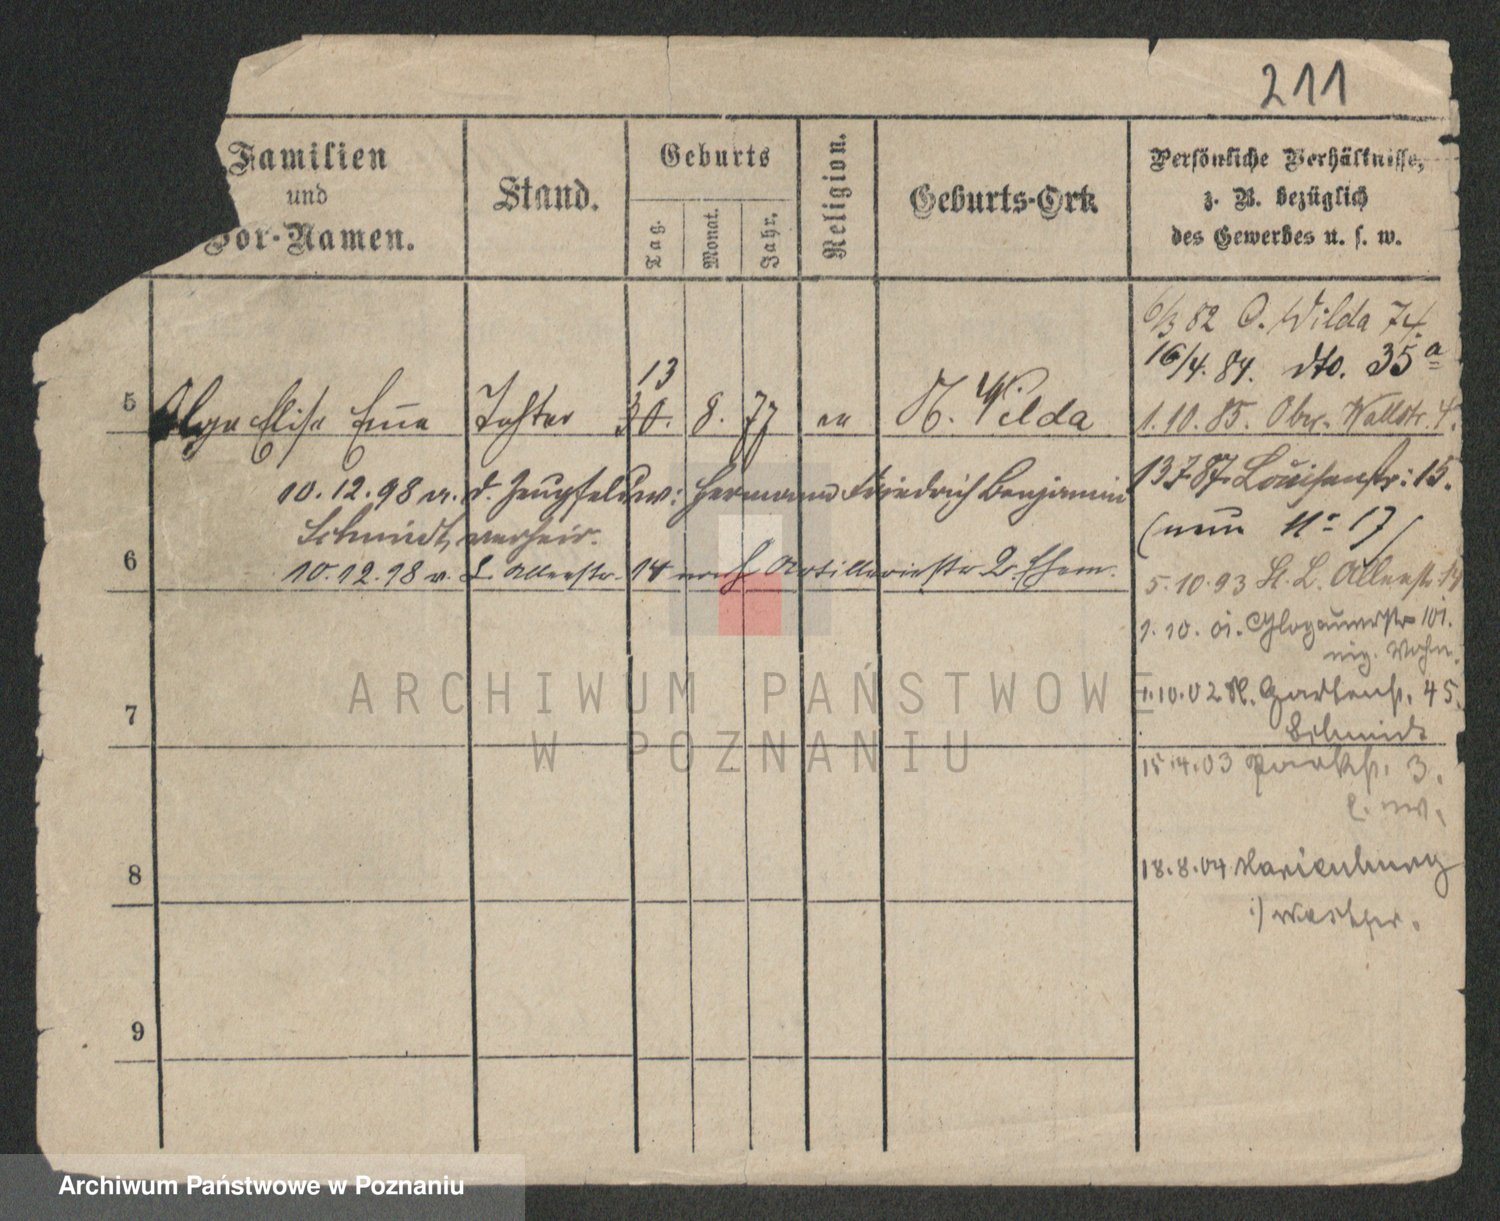 211
Familien
und
Vor-Namen.
Stand.
Geburts
Tag.
Monat.
Jahr.
Religion.
Geburts-Ort.
Persönliche Verhältnisse,
z. B. bezüglich
des Gewerbes u. s. w.
6/3 82 O. Wilda 74.
16/4. 84. dto. 35a
13
5 Olga Elise Emma Tochter 30. 8. 77 ev N. Wilda
1. 10. 85. Ober-Wallstr. 4.
10. 12. 98 m. d. Zeugfeldw: Hermann Friedrich Benjamin
13 7 87. Louisenstr: 15.
Schmidt, verheir.
(neu No 17)
6
10. 12. 98 v. Allerstr. 14 nach Artilleriestr 2. Ehem.
5. 10. 93 St. L. 14
1. 10. 01. Glogauerstr 101.
eig. Wohn.
7
1. 10. 02 Gartenstr. 45.
Schmidt
15. 4. 03 Parkstr. 3.
8
18. 8. 04 Marienburg
i) Westpr.
9
ARCHIWUM PAŃSTWOWE
W POZNANIU
Archiwum Państwowe w Poznaniu